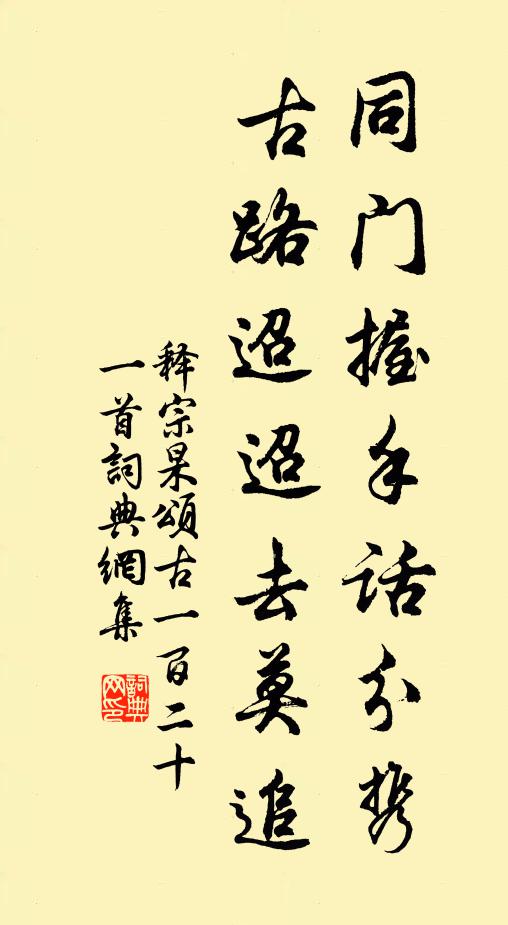 同门握手话分携
古路迢迢去莫追
释宗杲頌古一百二十
一首詞典網集
詞典
网印